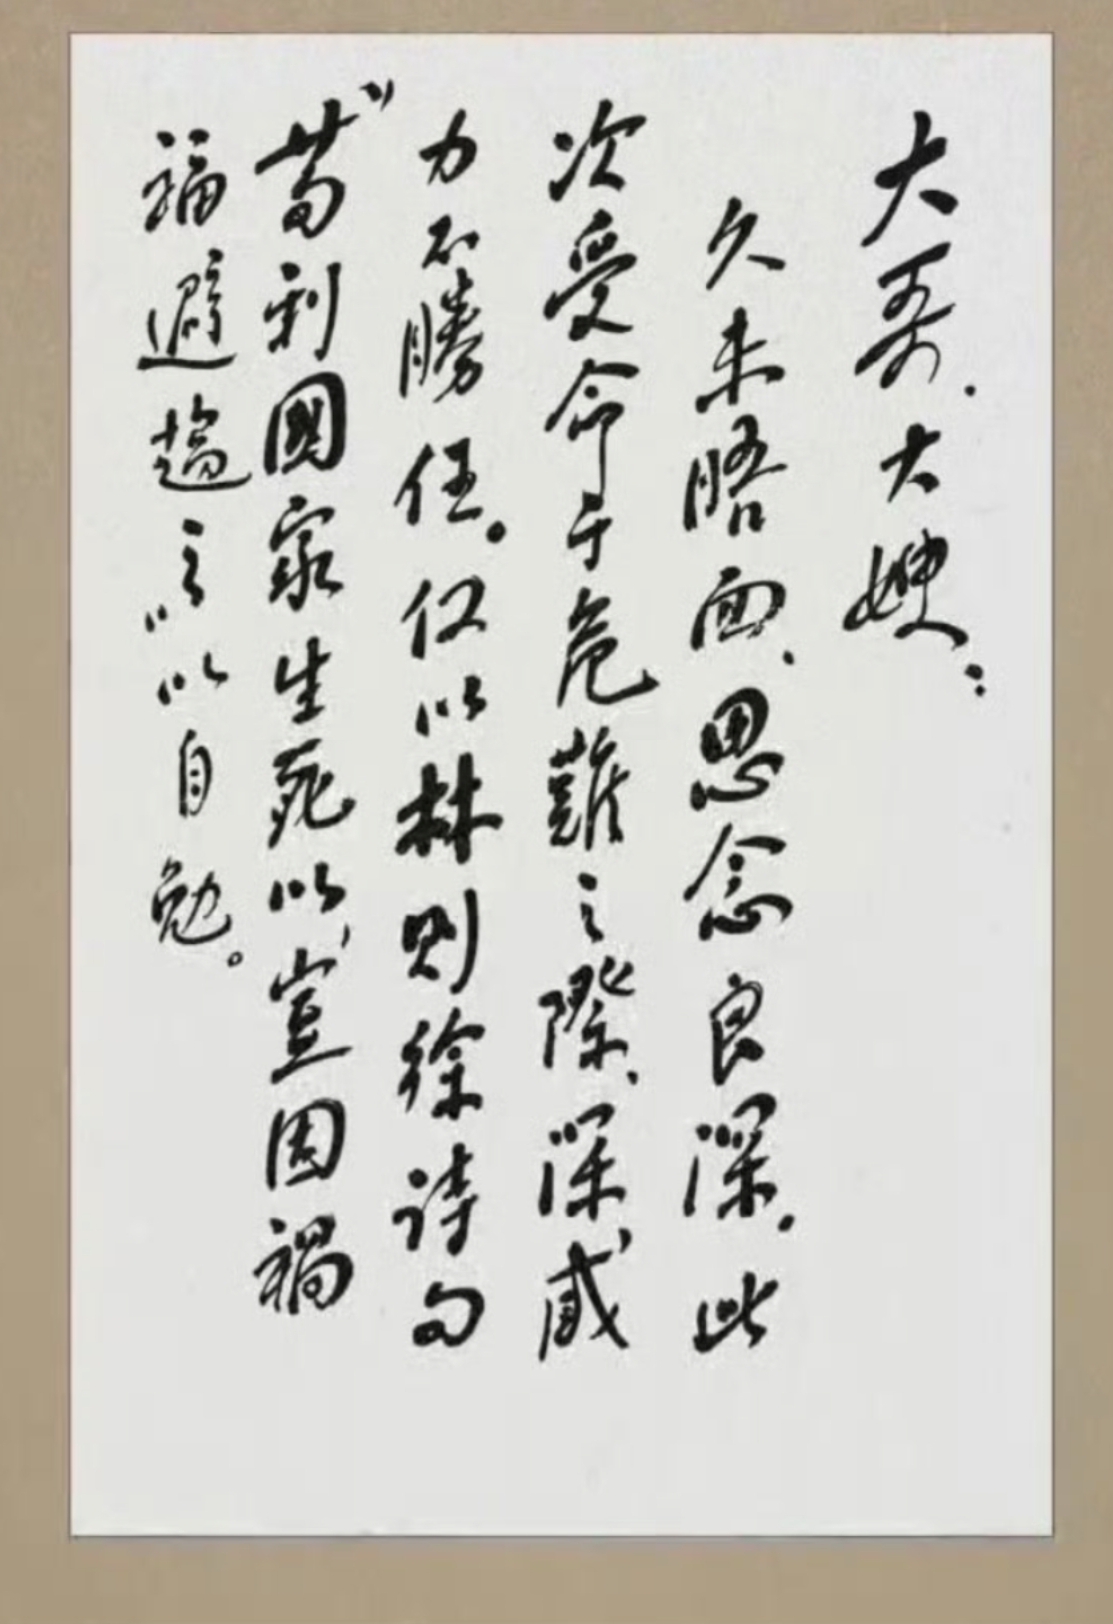 大哥、大嫂：
久未晤面、思念良深。此
次受命于危難之際、深感
力不勝任。仅以林则徐诗句
“苟利國家生死以，豈因禍
福避趨之”以自勉。